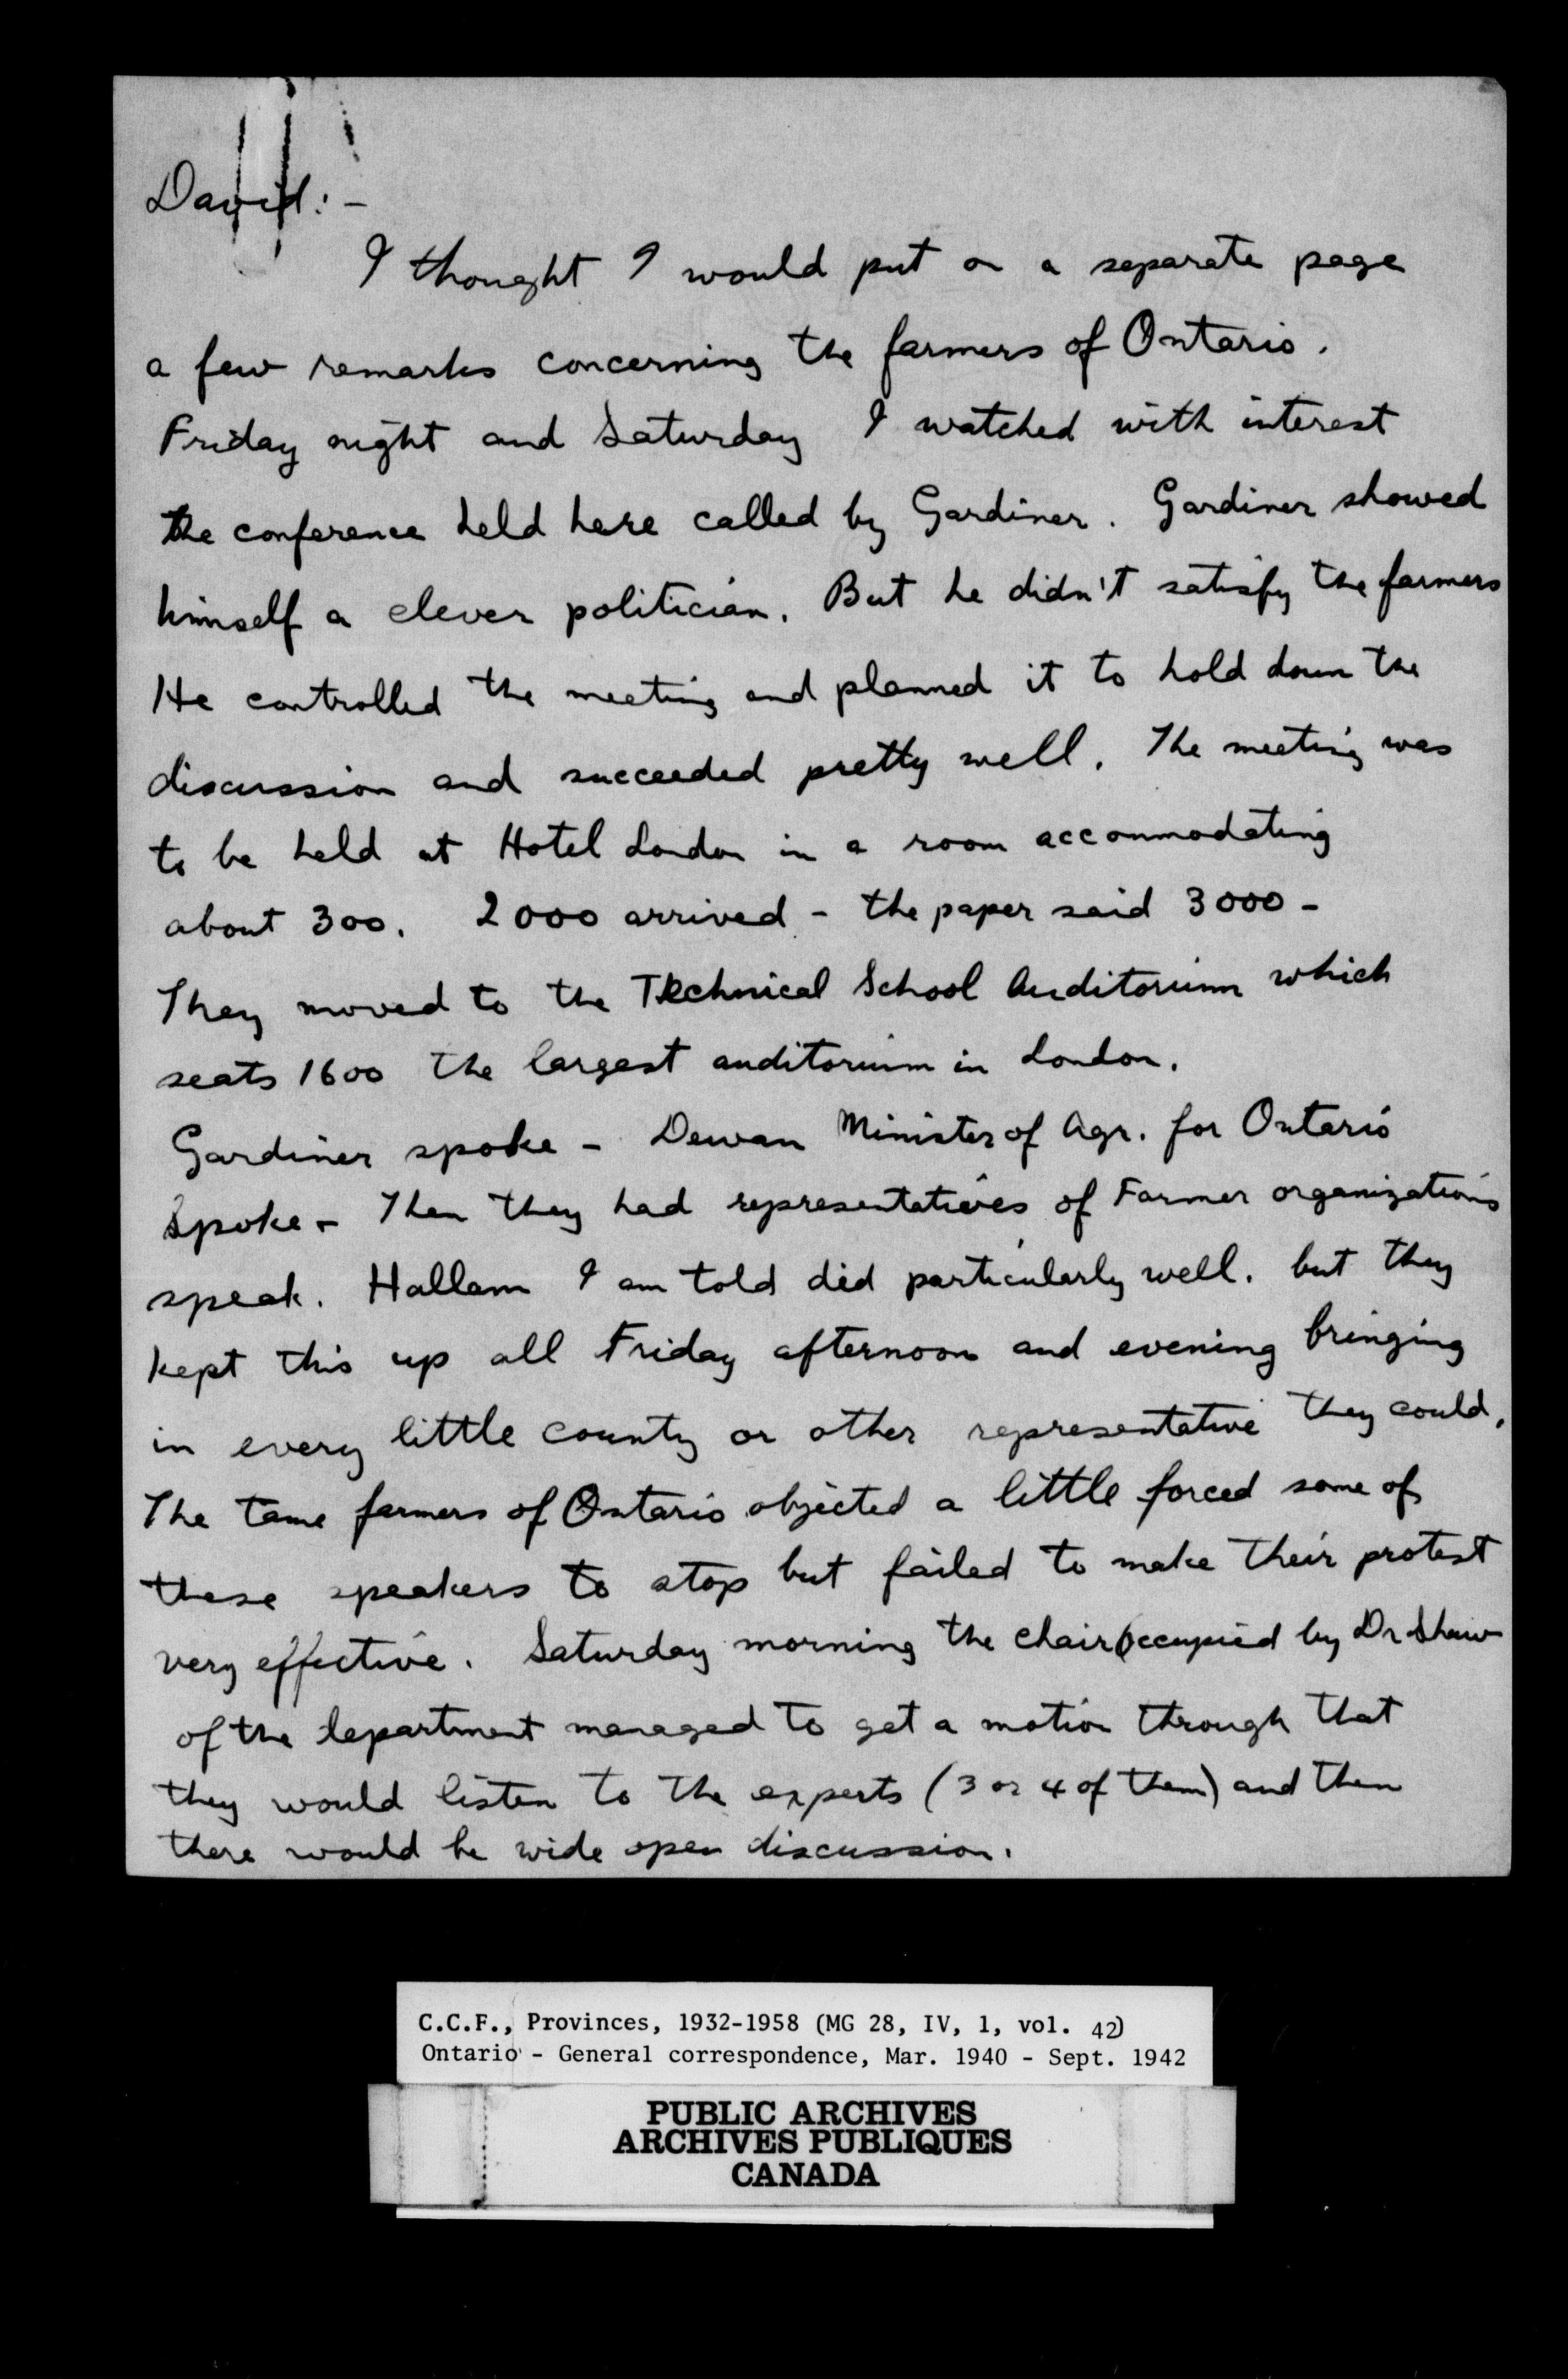 David:-
I thought I would put on a separate page
a few remarks concerning the farmers of Ontario.
Friday night and Saturday I watched with interest
the conference held here called by Gardiner. Gardiner showed
himself a clever politician. But he didn't satisfy the farmers
He controlled the meeting and planned it to hold down the
discussion and succeeded pretty well. The meeting was
to be held at Hotel London in a room accommodating
about 300. 2000 arrived - the paper said 3000 -
They moved to the Technical School Auditorium which
seats 1600 the largest auditorium in London.
Gardiner spoke - Dewan Minister of Agr. for Ontario
Spoke - Then they had representatives of Farmer organizations
speak. Hallam I am told did particularly well. but they
kept this up all Friday afternoon and evening bringing
in every little county or other representative they could.
The tame farmers of Ontario objected a little forced some of
these speakers to stop but failed to make their protest
very effective. Saturday morning the chair occupied by Dr Shaw
of the department managed to get a motion through that
they would listen to the experts (3 or 4 of them) and then
there would be wide open discussion.
C.C.F., Provinces, 1932-1958 (MG 28, IV, 1, vol. 42)
Ontario - General correspondence, Mar. 1940 - Sept. 1942
PUBLIC ARCHIVES
ARCHIVES PUBLIQUES
CANADA